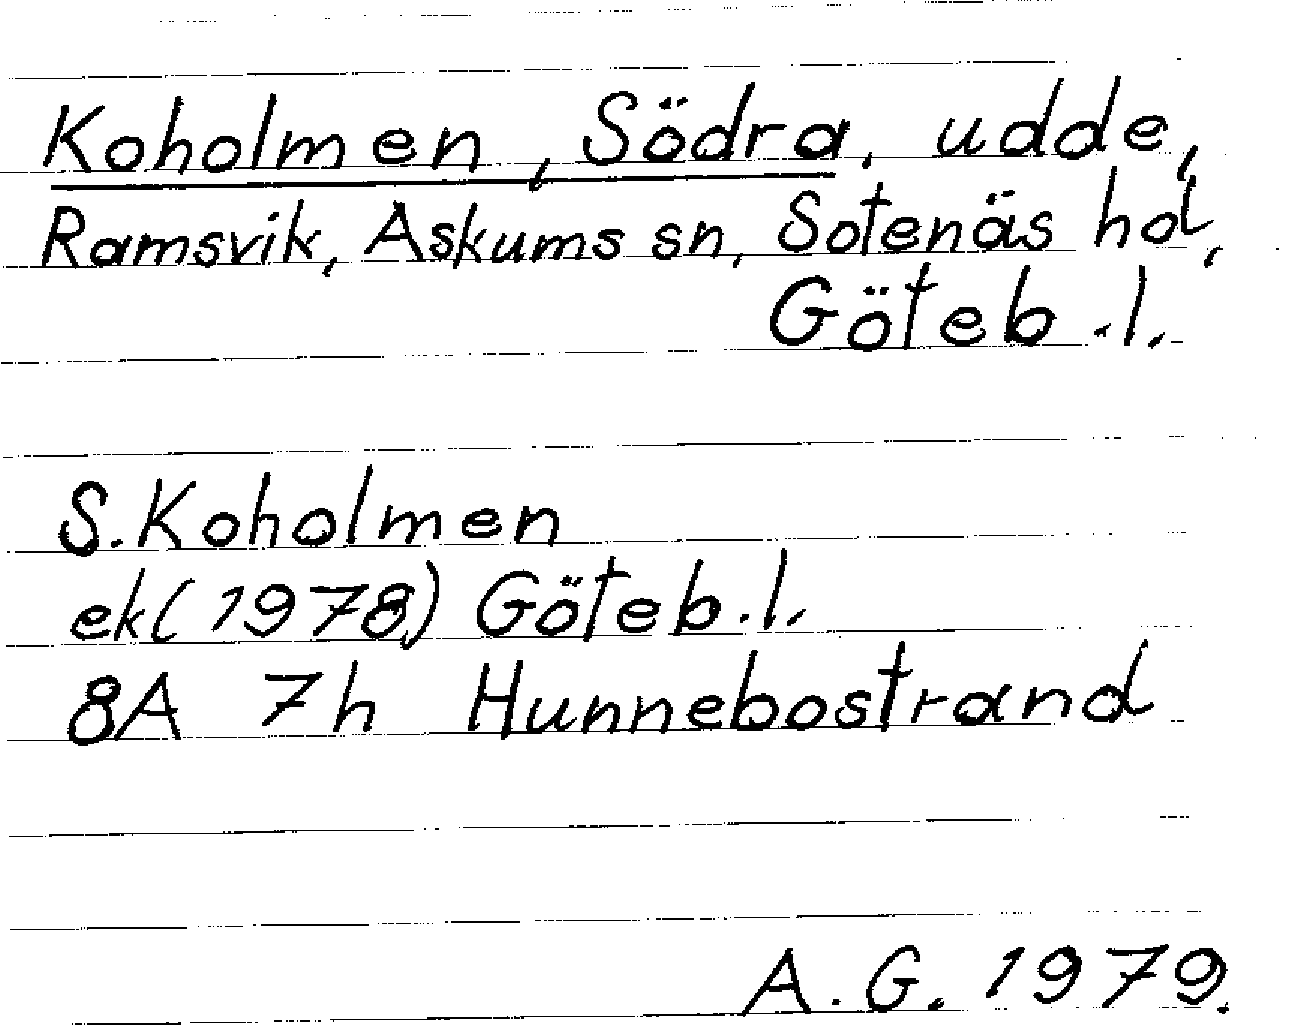 Koholmen, Södra, udde,
Ramsvik, Askums sn, Sotenäs hd,
Göteb.l.
S. Koholmen
ek (1978) Göteb.l.
8A 7h Hunnebostrand
A.G. 1979.